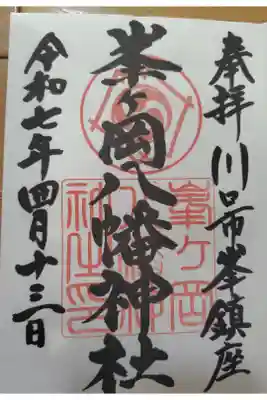 奉拝 川口市峯鎮座
峯ヶ岡八幡神社
峯ヶ岡
八幡神
社之印
令和七年四月十三日